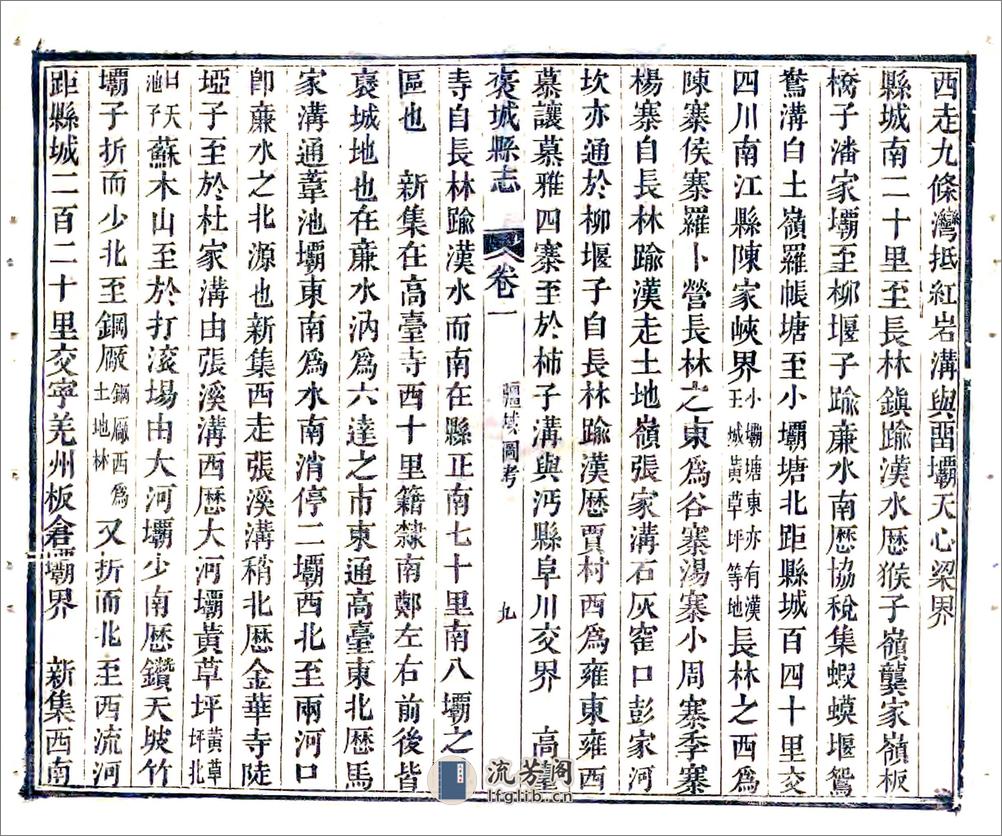 西走九條灣抵紅岩溝與酉壩天心梁界
縣城南二十里至長林鎮踰漢水歷猴子嶺龔家嶺板
橋子潘家壩至柳堰子踰亷水南歷協稅集蝦蟆堰鴛
鴦溝白土嶺羅帳塘至小壩塘北距縣城百四十里交
四川南江縣陳家峽界小壩塘東亦有漢王城黃草坪等地長林之西爲
陳寨侯寨羅卜營長林之東爲谷寨湯寨小周寨季寨
楊寨自長林踰漢走土地嶺張家溝石灰窑口彭家河
坎亦通於柳堰子自長林踰漢歷賈村西爲雍東雍西
慕讓慕雅四寨至於柿子溝與沔縣阜川交界　高臺
褒城縣志　卷一　疆域圖考　九
寺自長林踰漢水而南在縣正南七十里南八壩之
區也　新集在高臺寺西十里籍隸南鄭左右前後皆
襃城地也在亷水汭爲六達之市東通高臺東北歷馬
家溝通葦池壩東南爲水南消停二壩西北至兩河口
卽亷水之北源也新集西走張溪溝稍北歷金華寺陡
埡子至於杜家溝由張溪溝西歷大河壩黃草坪黃草坪北
曰天池子蘇木山至於打滾場由大河壩少南歷鑽天坡竹
壩子折而少北至鋼厰鋼厰西爲土地林又折而北至西流河
距縣城二百二十里交寧羌州板倉壩界　新集西南
流芳阁
lfglib.cn